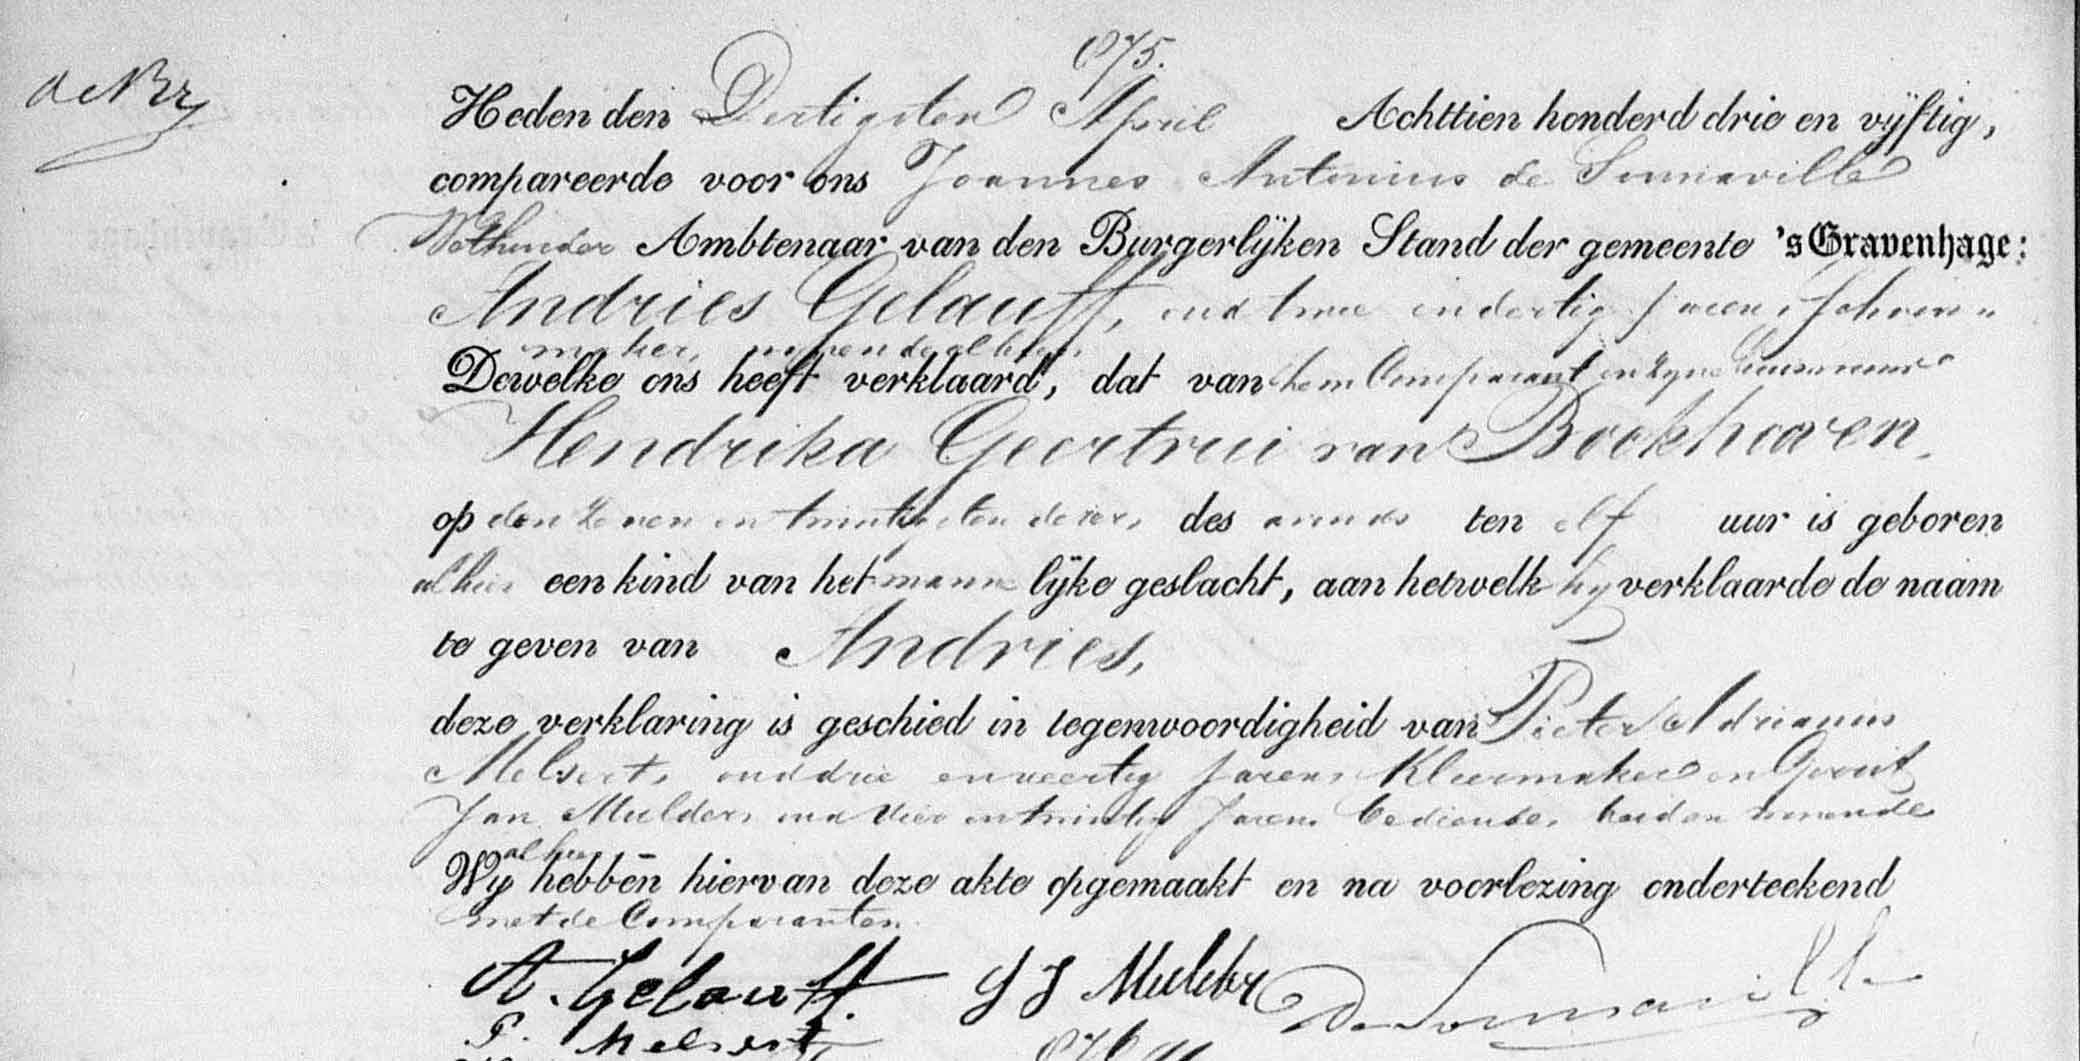 875.
Heden den Dertigsten April Achttien honderd drie en vijftig,
compareerde voor ons Joannes Antonius de Somaville
Wethouder Ambtenaar van den Burgerlijken Stand der gemeente 's Gravenhage:
Andries Gelauff, oud twee en dertig Jaren, Schoen„
maker, wonende alhier,
Dewelke ons heeft verklaard, dat van hem Comparant en zyne huisvrouw
Hendrika Geertrui van Bockhoven,
op den Zeven en twintigsten dezer, des avonds ten elf uur is geboren
alhier een kind van het mannelijke geslacht, aan hetwelk hy verklaarde de naam
te geven van Andries,
deze verklaring is geschied in tegenwoordigheid van Pieter Adrianus
Melsert, oud drie en veertig Jaren, Kleermaker en Gerrit
Jan Mulder, oud vier en twintig Jaren, bediende, beiden wonende
alhier
Wij hebben hiervan deze akte opgemaakt en na voorlezing onderteekend
met de Comparanten.
A. Gelauff. G J Mulder De Somaville
P. Melsert
876